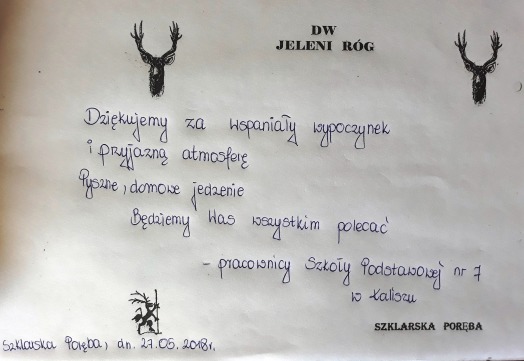 DW
JELENI RÓG
Dziękujemy za wspaniały wypoczynek
i przyjazną atmosferę
Pyszne, domowe jedzenie
Będziemy Was wszystkim polecać
- pracownicy Szkoły Podstawowej nr 7
w Kaliszu
SZKLARSKA PORĘBA
Szklarska Poręba, dn. 27.05.2018r.